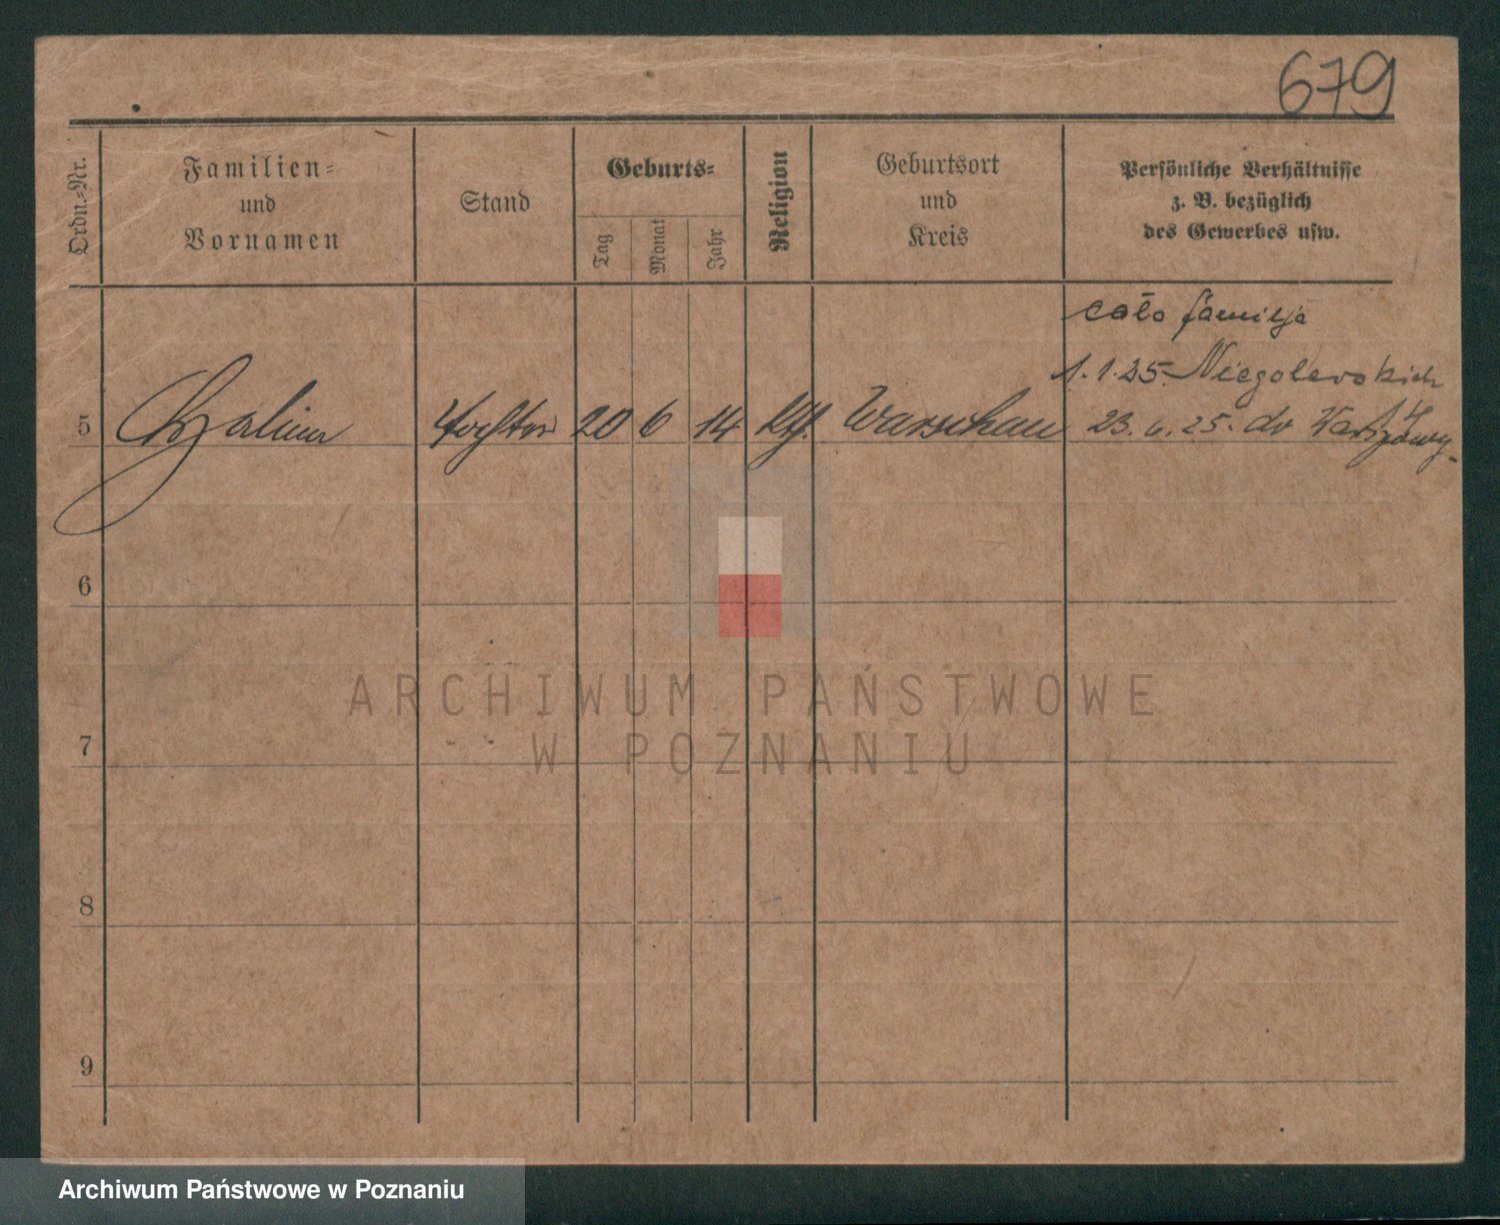 679
Ordn.-Nr.
Familien-
und
Vornamen
Stand
Geburts-
Tag
Monat
Jahr
Religion
Geburtsort
und
Kreis
Persönliche Verhältnisse
z. B. bezüglich
des Gewerbes usw.
cała familja
1.1.25. Niegolewskich
5 Tochter 20 6 14 Warschau 23.6.25. do Warszawy.
6
7
8
9
ARCHIWUM PAŃSTWOWE
W POZNANIU
Archiwum Państwowe w Poznaniu